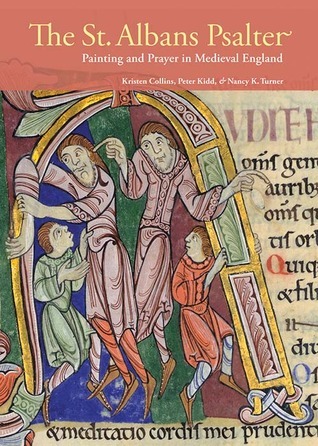 The St. Albans Psalter
Painting and Prayer in Medieval England
Kristen Collins, Peter Kidd, & Nancy K. Turner
UDITE H
om̄s gen
aurib
om̄s q
tis orb
Quiq
& fili
dit
In
& meditatio cordis mei prudent